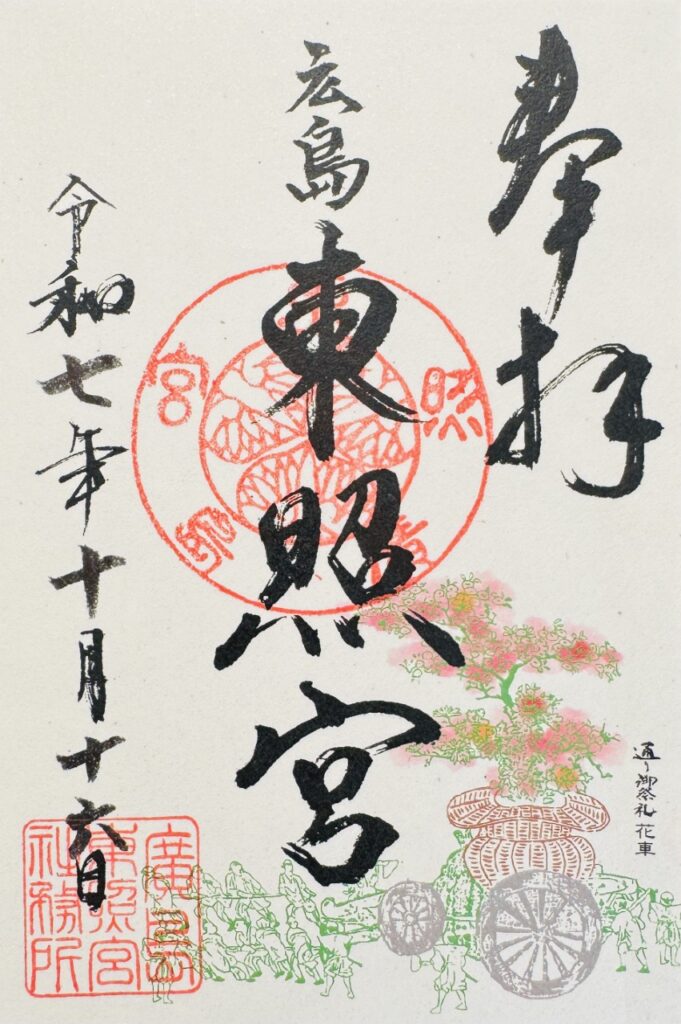 奉拝
広島
東照宮
令和七年十月十六日
通り御祭礼 花車
廣島
東照宮
社務所